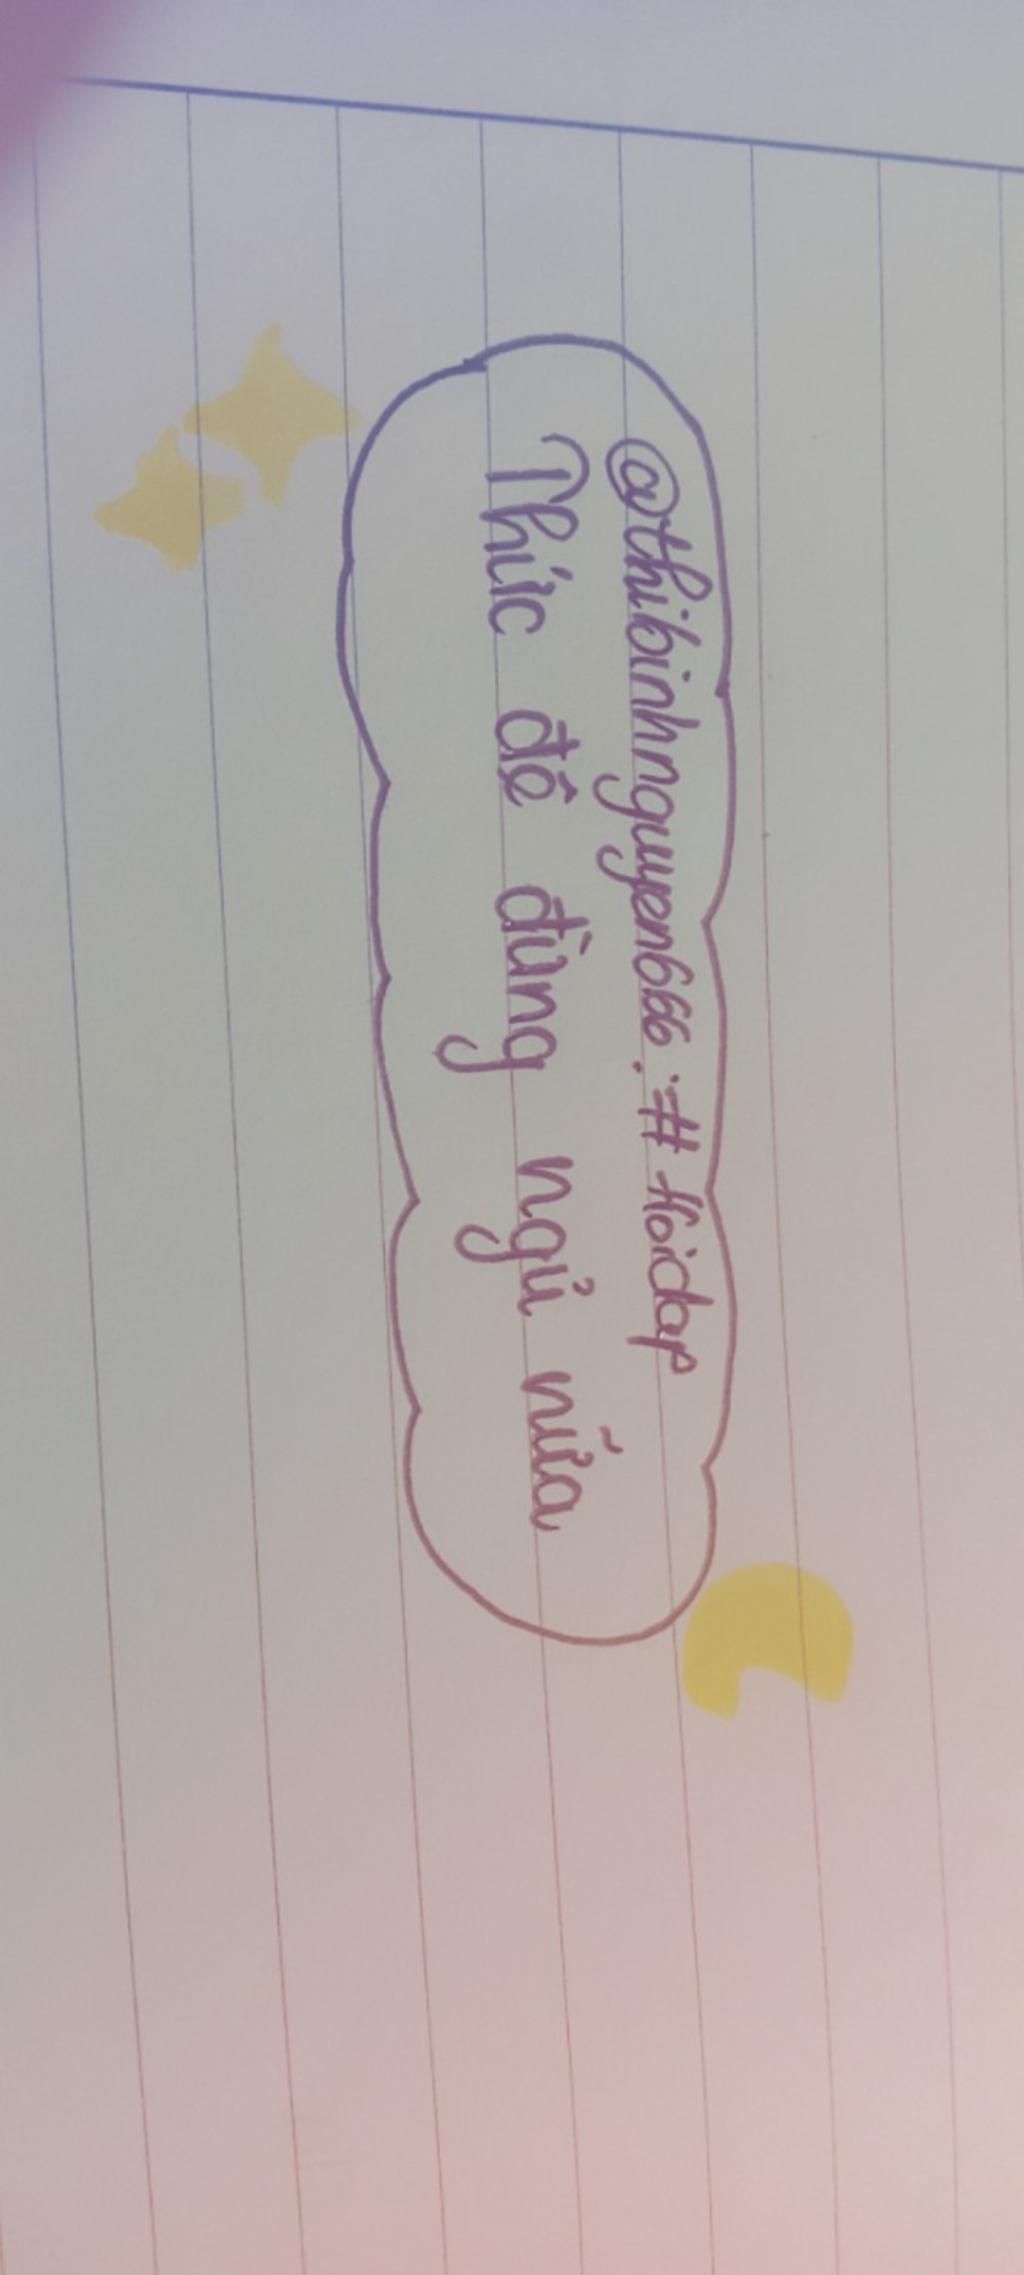 @thibinhnguyen666 : # Hoidap
Thức đê đừng ngủ nữa